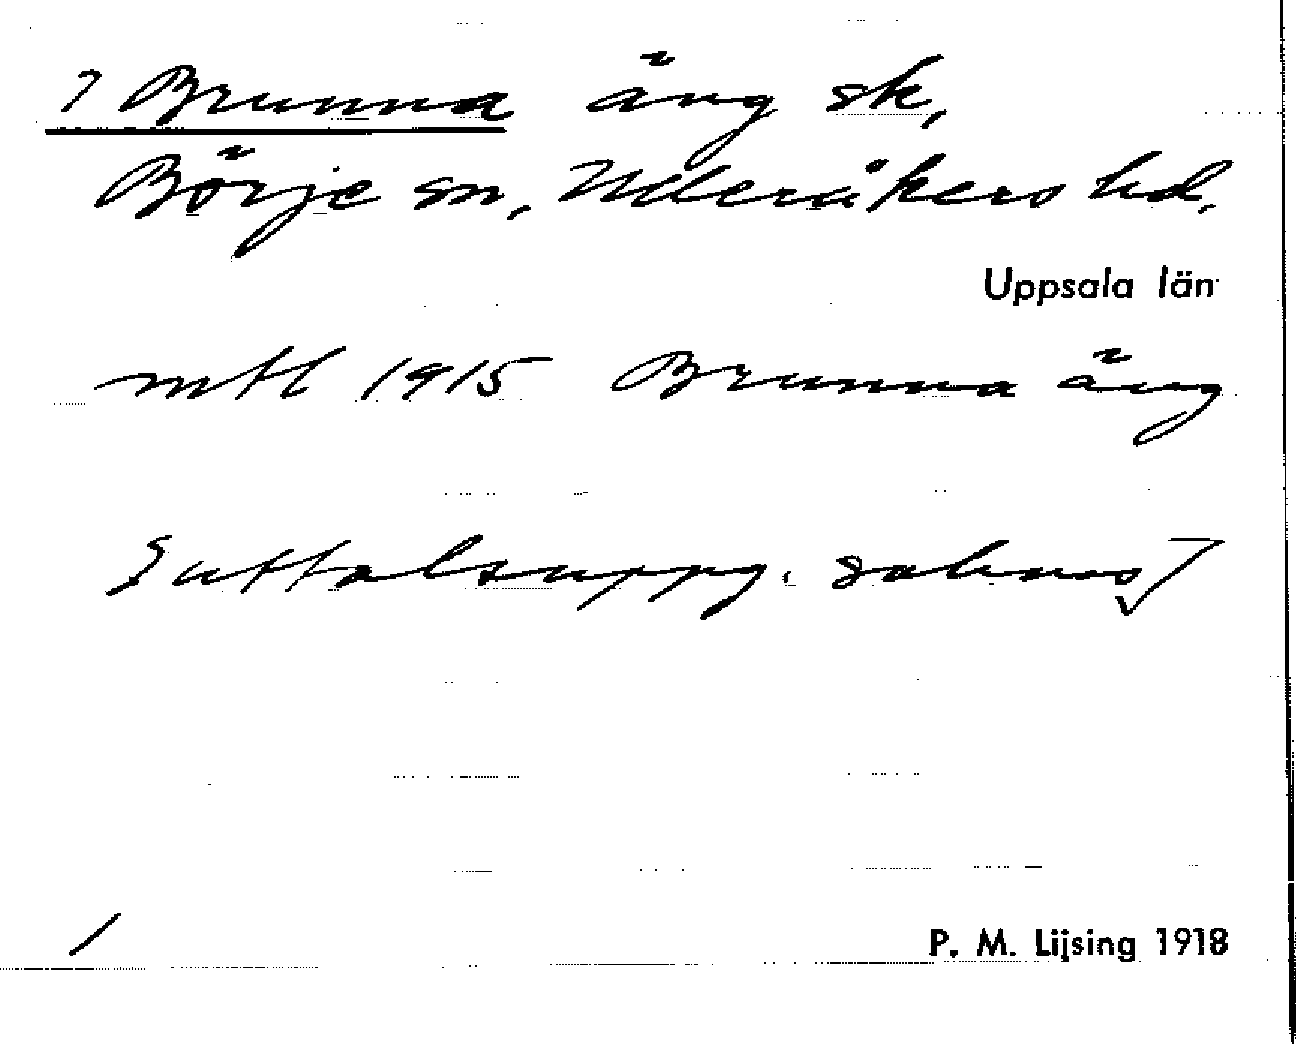 ? Brunna äng sk,
Börje sn, Ulleråkers hd.
Uppsala län
mtl 1915 Brunna äng
Suttalsuppg. saknas]
/
P. M. Lijsing 1918